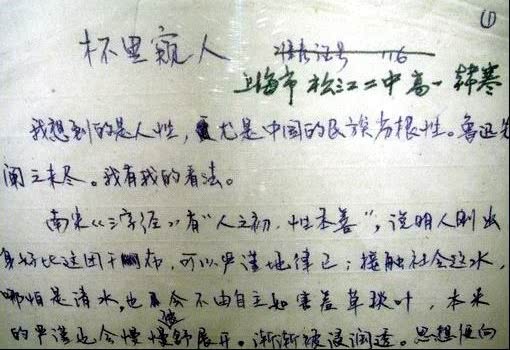 ①
杯里窥人
准考证号 116
上海市松江二中高一韩寒
我想到的是人性，尤是中国的民族劣根性。鲁迅先
阐之未尽。我有我的看法。
南宋《三字经》有“人之初，性本善”，说明人刚出
身好比这团干布，可以严谨地律己；接触社会这水，
哪怕是清水，也会不由自主如害羞草掞叶，本来
的严谨也会慢慢地舒展开。渐渐被浸润透。思想便向